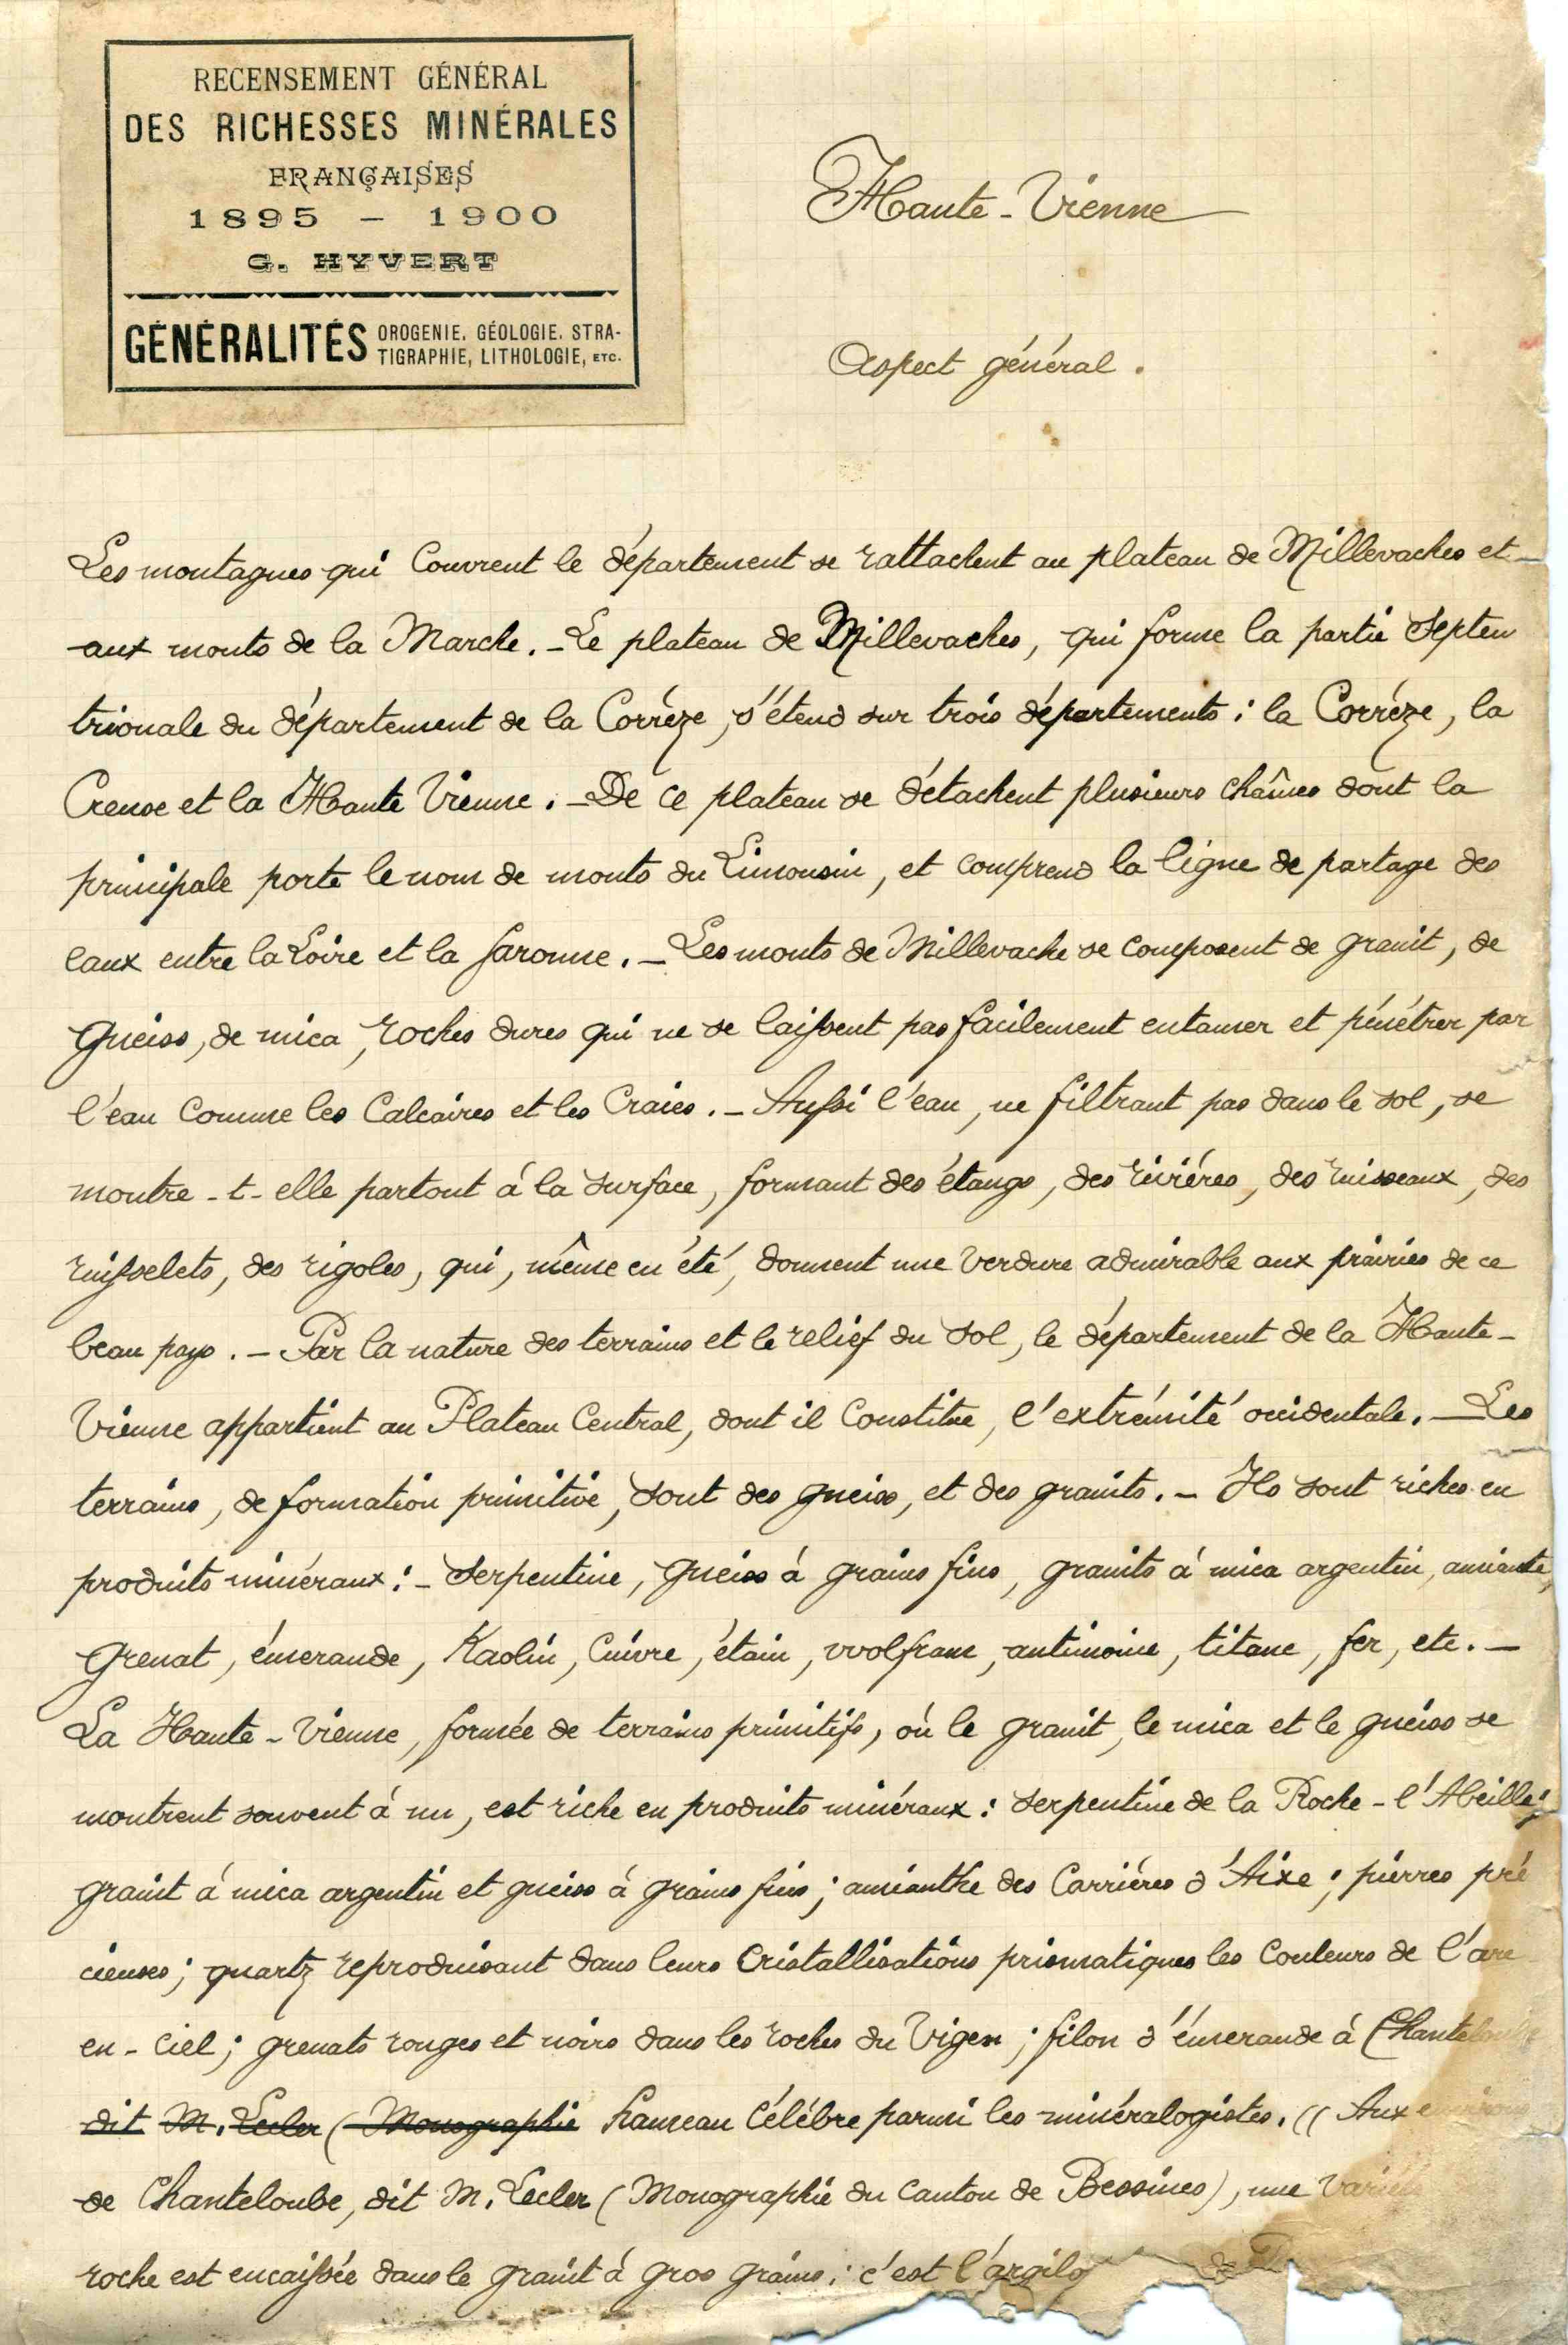 RECENSEMENT GÉNÉRAL
DES RICHESSES MINÉRALES
FRANÇAISES
1895 - 1900
G. HYVERT
GÉNÉRALITÉS OROGENIE, GÉOLOGIE, STRA-
TIGRAPHIE, LITHOLOGIE, ETC.
Haute-Vienne
Aspect général.
Les montagnes qui couvrent le département se rattachent au plateau de Millevaches et
aux monts de la Marche. - Le plateau de Millevaches, qui forme la partie septen
trionale du département de la Corrèze, s'étend sur trois départements : la Corrèze, la
Creuse et la Haute Vienne. - De ce plateau se détachent plusieurs chaînes dont la
principale porte le nom de monts du Limousin, et comprend la ligne de partage des
eaux entre la Loire et la Garonne. - Les monts de Millevache se composent de granit, de
gneiss, de mica, roches dures qui ne se laissent pas facilement entamer et pénétrer par
l'eau comme les Calcaires et les Craies. - Aussi l'eau, ne filtrant pas dans le sol, se
montre-t-elle partout à la surface, formant des étangs, des rivières, des ruisseaux, des
ruisselets, des rigoles, qui, même en été, donnent une verdure admirable aux prairies de ce
beau pays. - Par la nature des terrains et le relief du sol, le département de la Haute-
Vienne appartient au Plateau Central, dont il constitue, l'extrémité occidentale. - Les
terrains, de formation primitive, sont des gneiss, et des granits. - Ils sont riches en
produits minéraux : - Serpentine, gneiss à grains fins, granits à mica argentin, amiante,
grenat, émeraude, Kaolin, Cuivre, étain, wolfram, antimoine, titane, fer, etc. -
La Haute-Vienne, formée de terrains primitifs, où le granit, le mica et le gneiss se
montrent souvent à nu, est riche en produits minéraux : serpentine de la Roche-l'Abeille;
granit à mica argentin et gneiss à grains fins ; amianthe des Carrières d'Aixe ; pierres pré
cieuses ; quartz reproduisant dans leurs Cristallisations prismatiques les Couleurs de l'arc
en-ciel ; grenats rouges et noirs dans les roches du Vigen ; filon d'émeraude à Chanteloube
dit M. Lecler (Monographie hameau célèbre parmi les minéralogistes. (( Aux environs
de Chanteloube, dit M. Lecler (Monographie du Canton de Bessines), une variété
roche est encaissée dans le granit à gros grains ; c'est l'argilo de